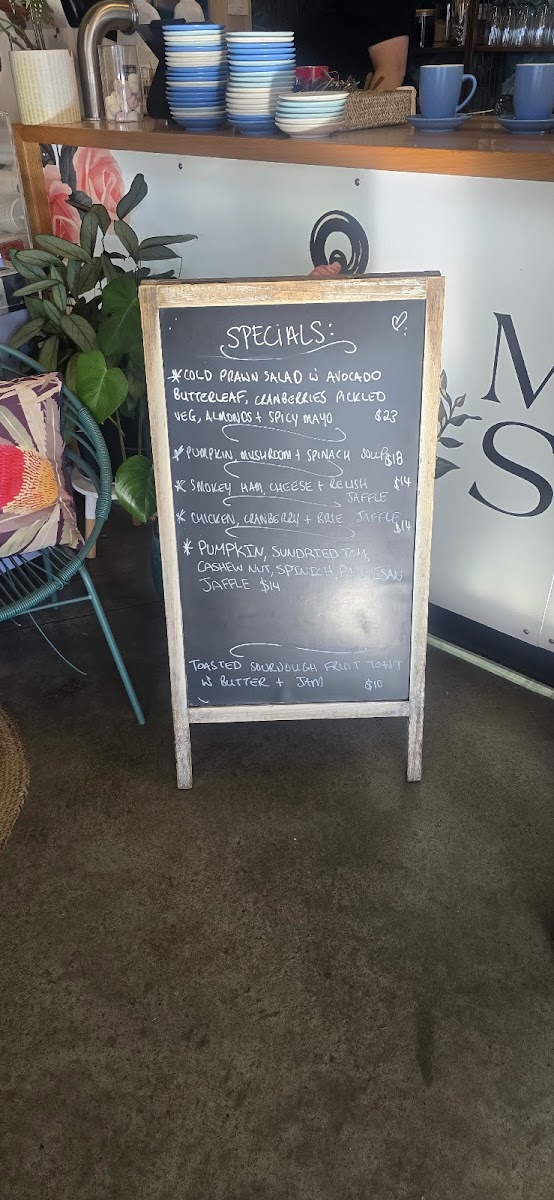 SPECIALS:
* COLD PRAWN SALAD W AVOCADO
BUTTERLEAF, CRANBERRIES PICKLED
VEG, ALMONDS + SPICY MAYO $23
* PUMPKIN, MUSHROOM + SPINACH SOUP $18
* SMOKEY HAM, CHEESE + RELISH $14
JAFFLE
* CHICKEN, CRANBERRY + BRIE JAFFLE
$14
* PUMPKIN, SUNDRIED TOM,
CASHEW NUT, SPINICH, PARMESAN
JAFFLE $14
TOASTED SOURDOUGH FRUIT TOAST
W BUTTER + JAM $10
M
S